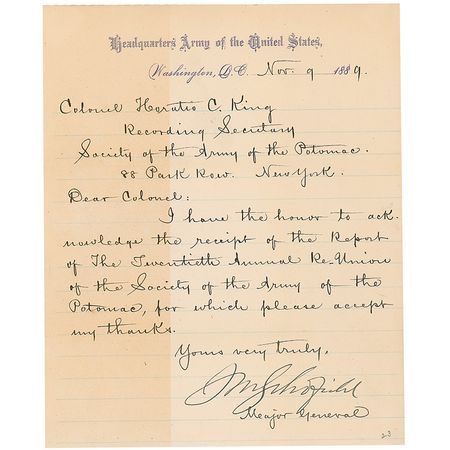 Headquarters Army of the United States,
Washington, D.C. Nov. 9 1889.
Colonel Horatio C. King
Recording Secretary
Society of the Army of the Potomac.
88 Park Row. New York.
Dear Colonel:
I have the honor to ack-
nowledge the receipt of the Report
of The Twentieth Annual Re-Union
of the Society of the Army of the
Potomac, for which please accept
my thanks.
Yours very truly,
JM Schofield
Major General
23